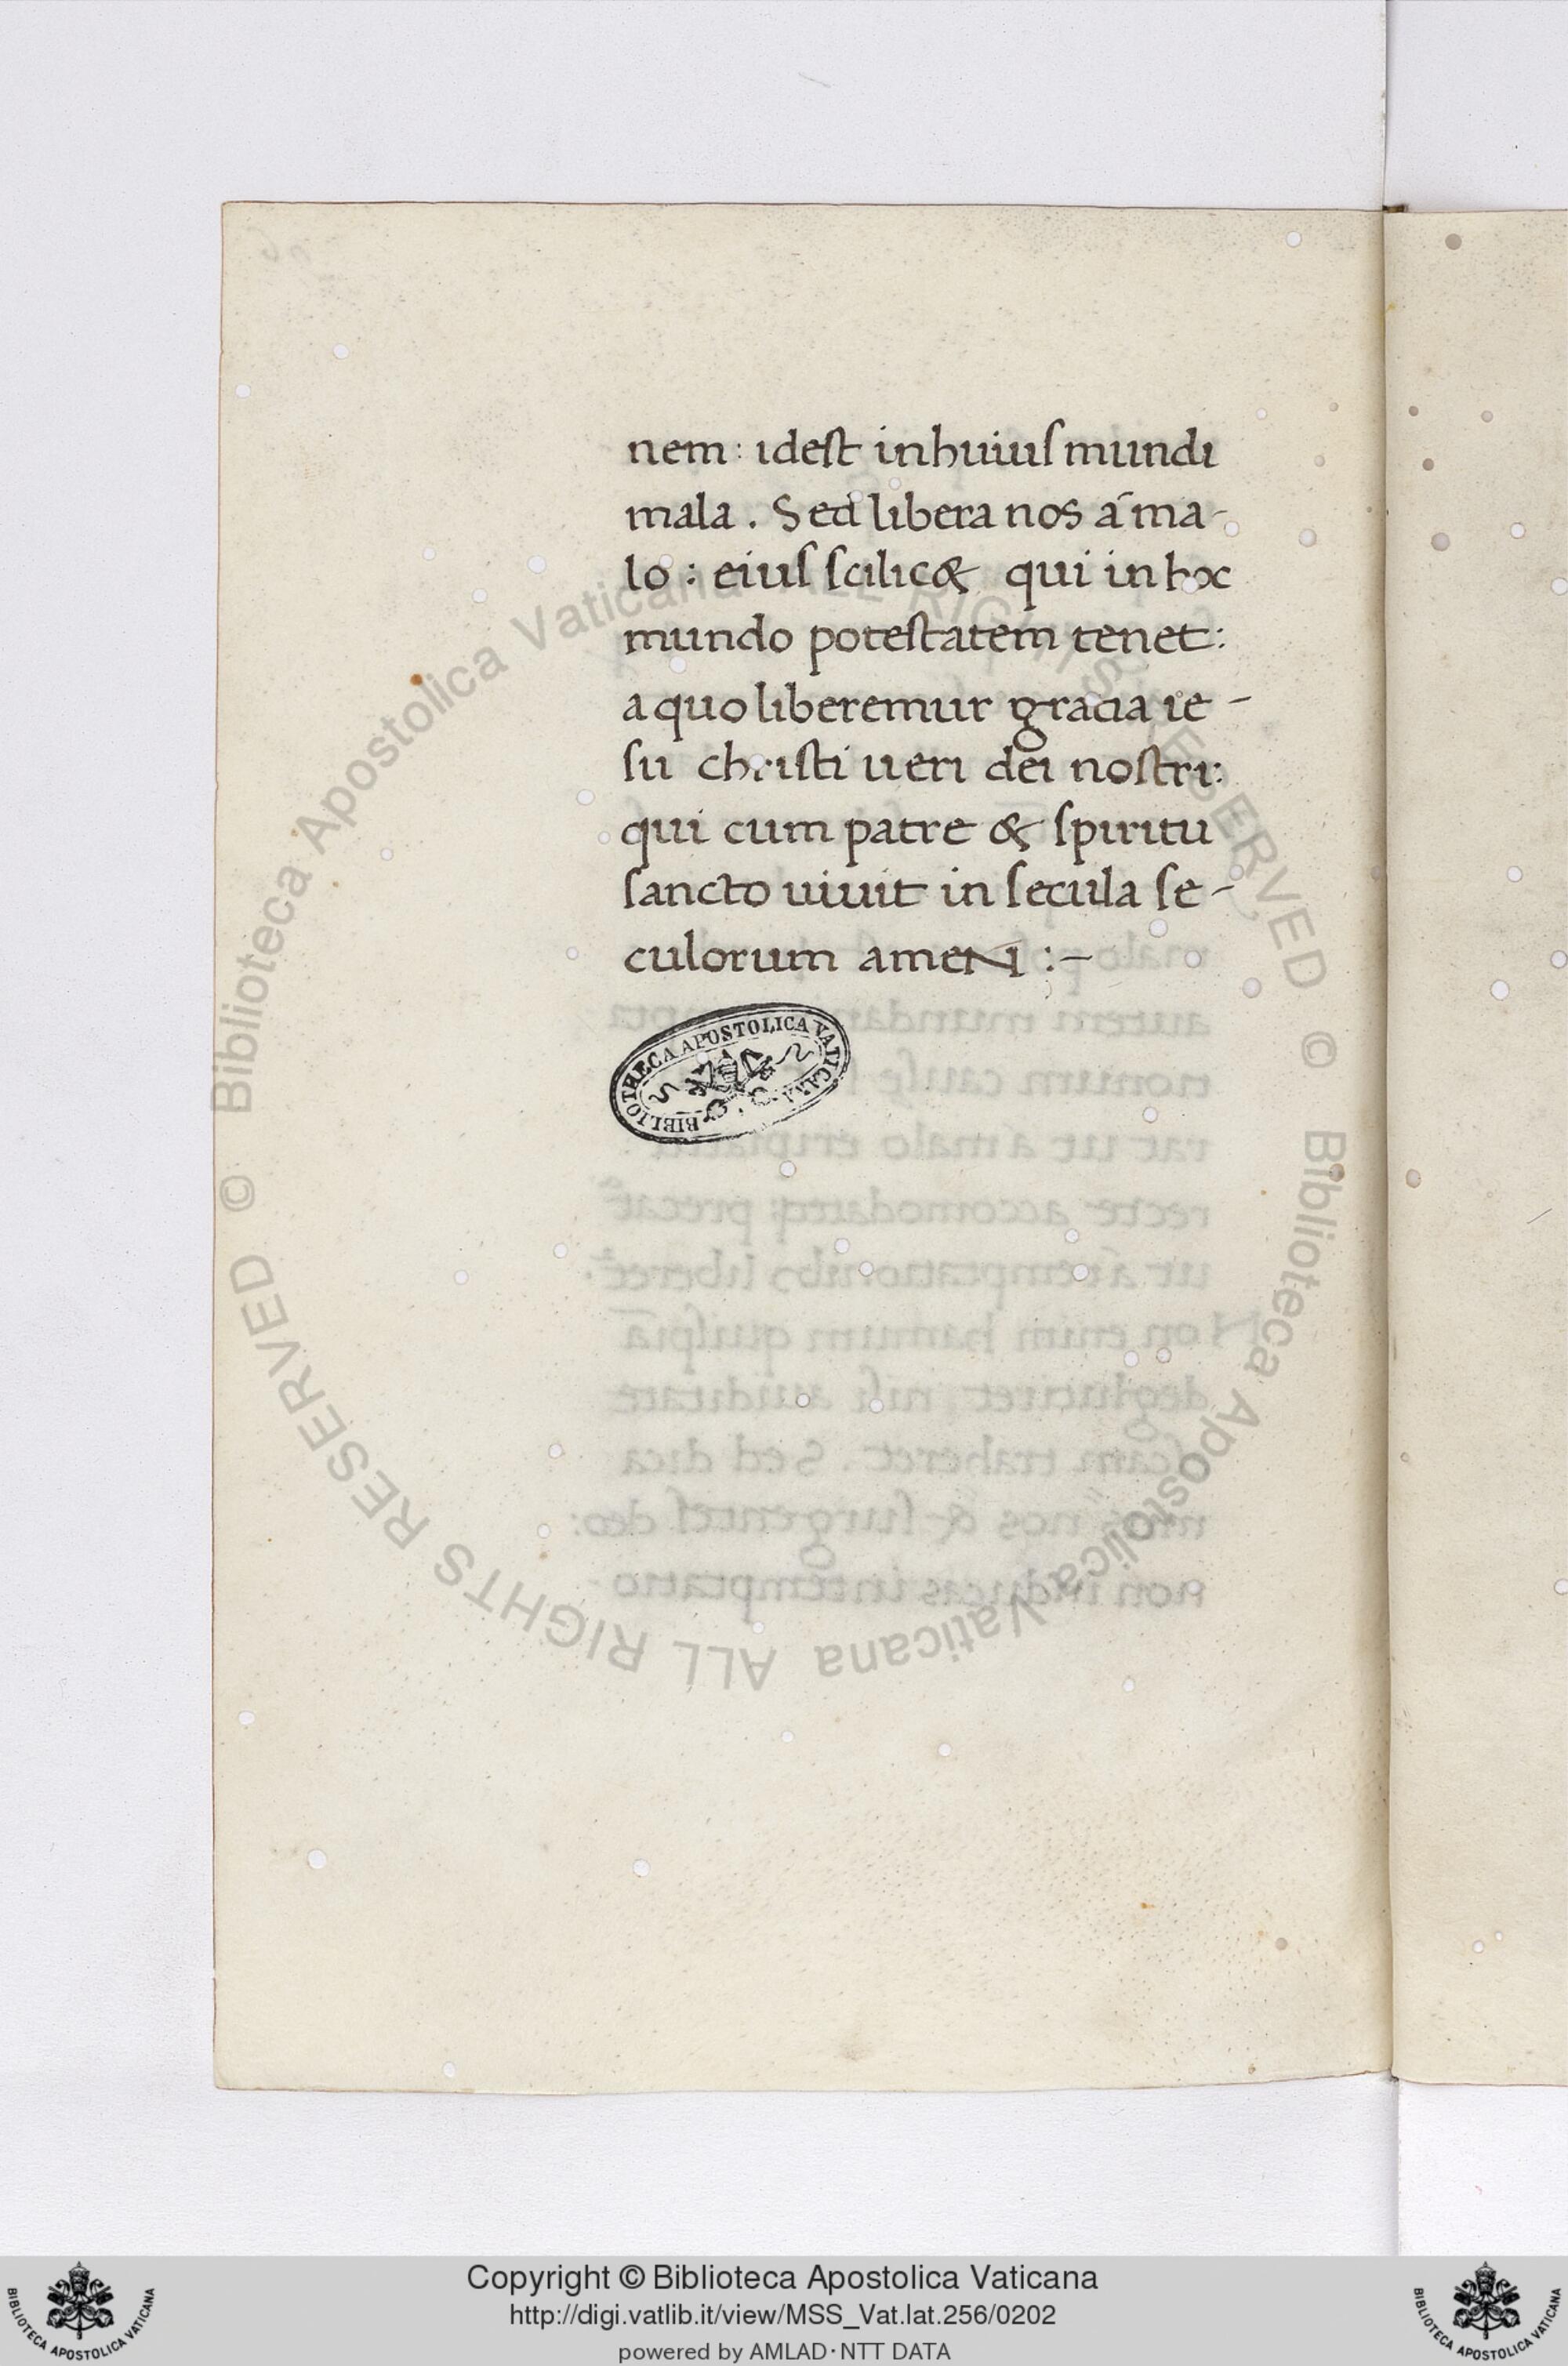 nem : idest inhuius mundi
mala . Sed libera nos á ma-
lo : eius scilic& qui in hoc
mundo potestatem tenet :
a quo liberemur gracia ie-
su christi ueri dei nostri :
qui cum patre & spiritu
sancto uiuit in secula se-
culorum ameN :-
BIBLIOTHECA APOSTOLICA VATICANA
© Biblioteca Apostolica Vaticana ALL RIGHTS RESERVED
© Biblioteca Apostolica Vaticana ALL RIGHTS RESERVED
Copyright © Biblioteca Apostolica Vaticana
http://digi.vatlib.it/view/MSS_Vat.lat.256/0202
powered by AMLAD·NTT DATA
BIBLIOTECA APOSTOLICA VATICANA
BIBLIOTECA APOSTOLICA VATICANA